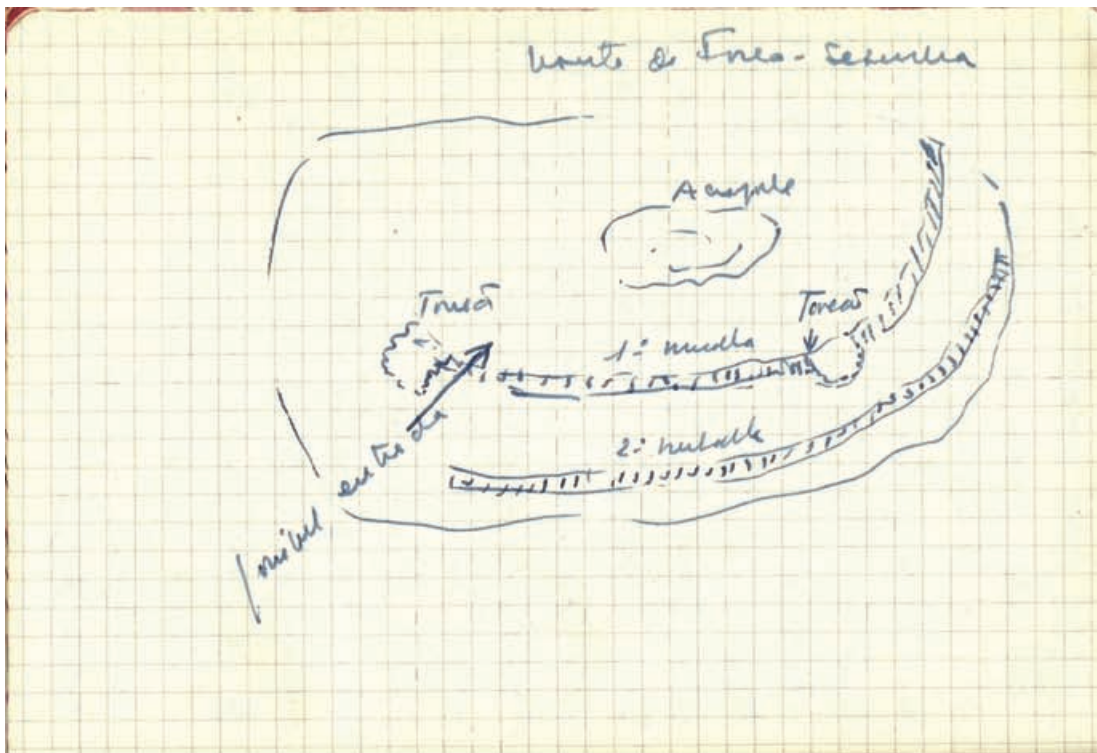 Monte de
Acropole
Torreão
Torreão
1ª muralha
2ª muralha
possível entrada